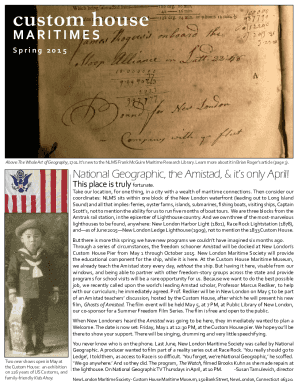 custom house
MARITIMES
Spring 2015
Above: The Whole Art of Geography, 1711. It's new to the NLMS Frank McGuire Maritime Research Library. Learn more about it in Brian Roger's article (page 3).
National Geographic, the Amistad, & it's only April!
This place is truly fortunate.
Take our location, for one thing, in a city with a wealth of maritime connections. Then consider our
coordinates: NLMS sits within one block of the New London waterfront (leading out to Long Island
Sound) and all that implies: ferries, oyster farms, islands, submarines, fishing boats, visiting ships, Captain
Scott's, not to mention the ability for us to run five months of boat tours. We are three blocks from the
Amtrak rail station, in the epicenter of Lighthouse country. And we own three of the most marvelous
lighthouses to be found, anywhere: New London Harbor Light (1801), Race Rock Lighthouse (1878),
and—as of June 2015—New London Ledge Lighthouse (1909), not to mention the 1833 Custom House.
But there is more: this spring, we have new prospects we couldn't have imagined six months ago.
Through a series of circumstances, the freedom schooner Amistad will be docked at New London's
Custom House Pier from May 1 through October 2015. New London Maritime Society will provide
the educational component for the ship, while it is here. At the Custom House Maritime Museum,
we already teach the Amistad story every day, without the ship. But having it here, visible from our
windows, and being able to partner with other freedom-story groups across the state and provide
programs for school visits will be a rare opportunity for us. Because we want to do the best possible
job, we recently called upon the world's leading Amistad scholar, Professor Marcus Rediker, to help
with our curriculum; he immediately agreed. Prof. Rediker will be in New London on May 5 to be part
of an Amistad teachers' discussion, hosted by the Custom House, after which he will present his new
film, Ghosts of Amistad. The film event will be held May 5, at 7 PM, at Public Library of New London,
our co-sponsor for a Summer Freedom Film Series. The film is free and open to the public.
When New Londoners heard the Amistad was going to be here, they immediately wanted to plan a
Welcome. The date is now set: Friday, May 1 at 12:30 PM, at the Custom House pier. We hope you'll be
there to show your support. There will be singing, drumming and very little speechifying.
You never know who is on the phone. Last Aug, New London Maritime Society was called by National
Geographic. A producer wanted to film part of a reality series out at Race Rock. 'You really should go to
Ledge', I told them, as access to Race is so difficult. 'You forget, we're National Geographic', he scoffed.
'We go anywhere.' And so they did. The program, The Watch, filmed Brooks Kubik as he made repairs at
the lighthouse. On National Geographic TV Thursdays in April, at 10 PM. -Susan Tamulevich, director
Two new shows open in May at
the Custom House: an exhibition
on 226 years of US Customs, and
family-friendly Kids Ahoy.
New London Maritime Society - Custom House Maritime Museum, 150 Bank Street, New London, Connecticut 06320